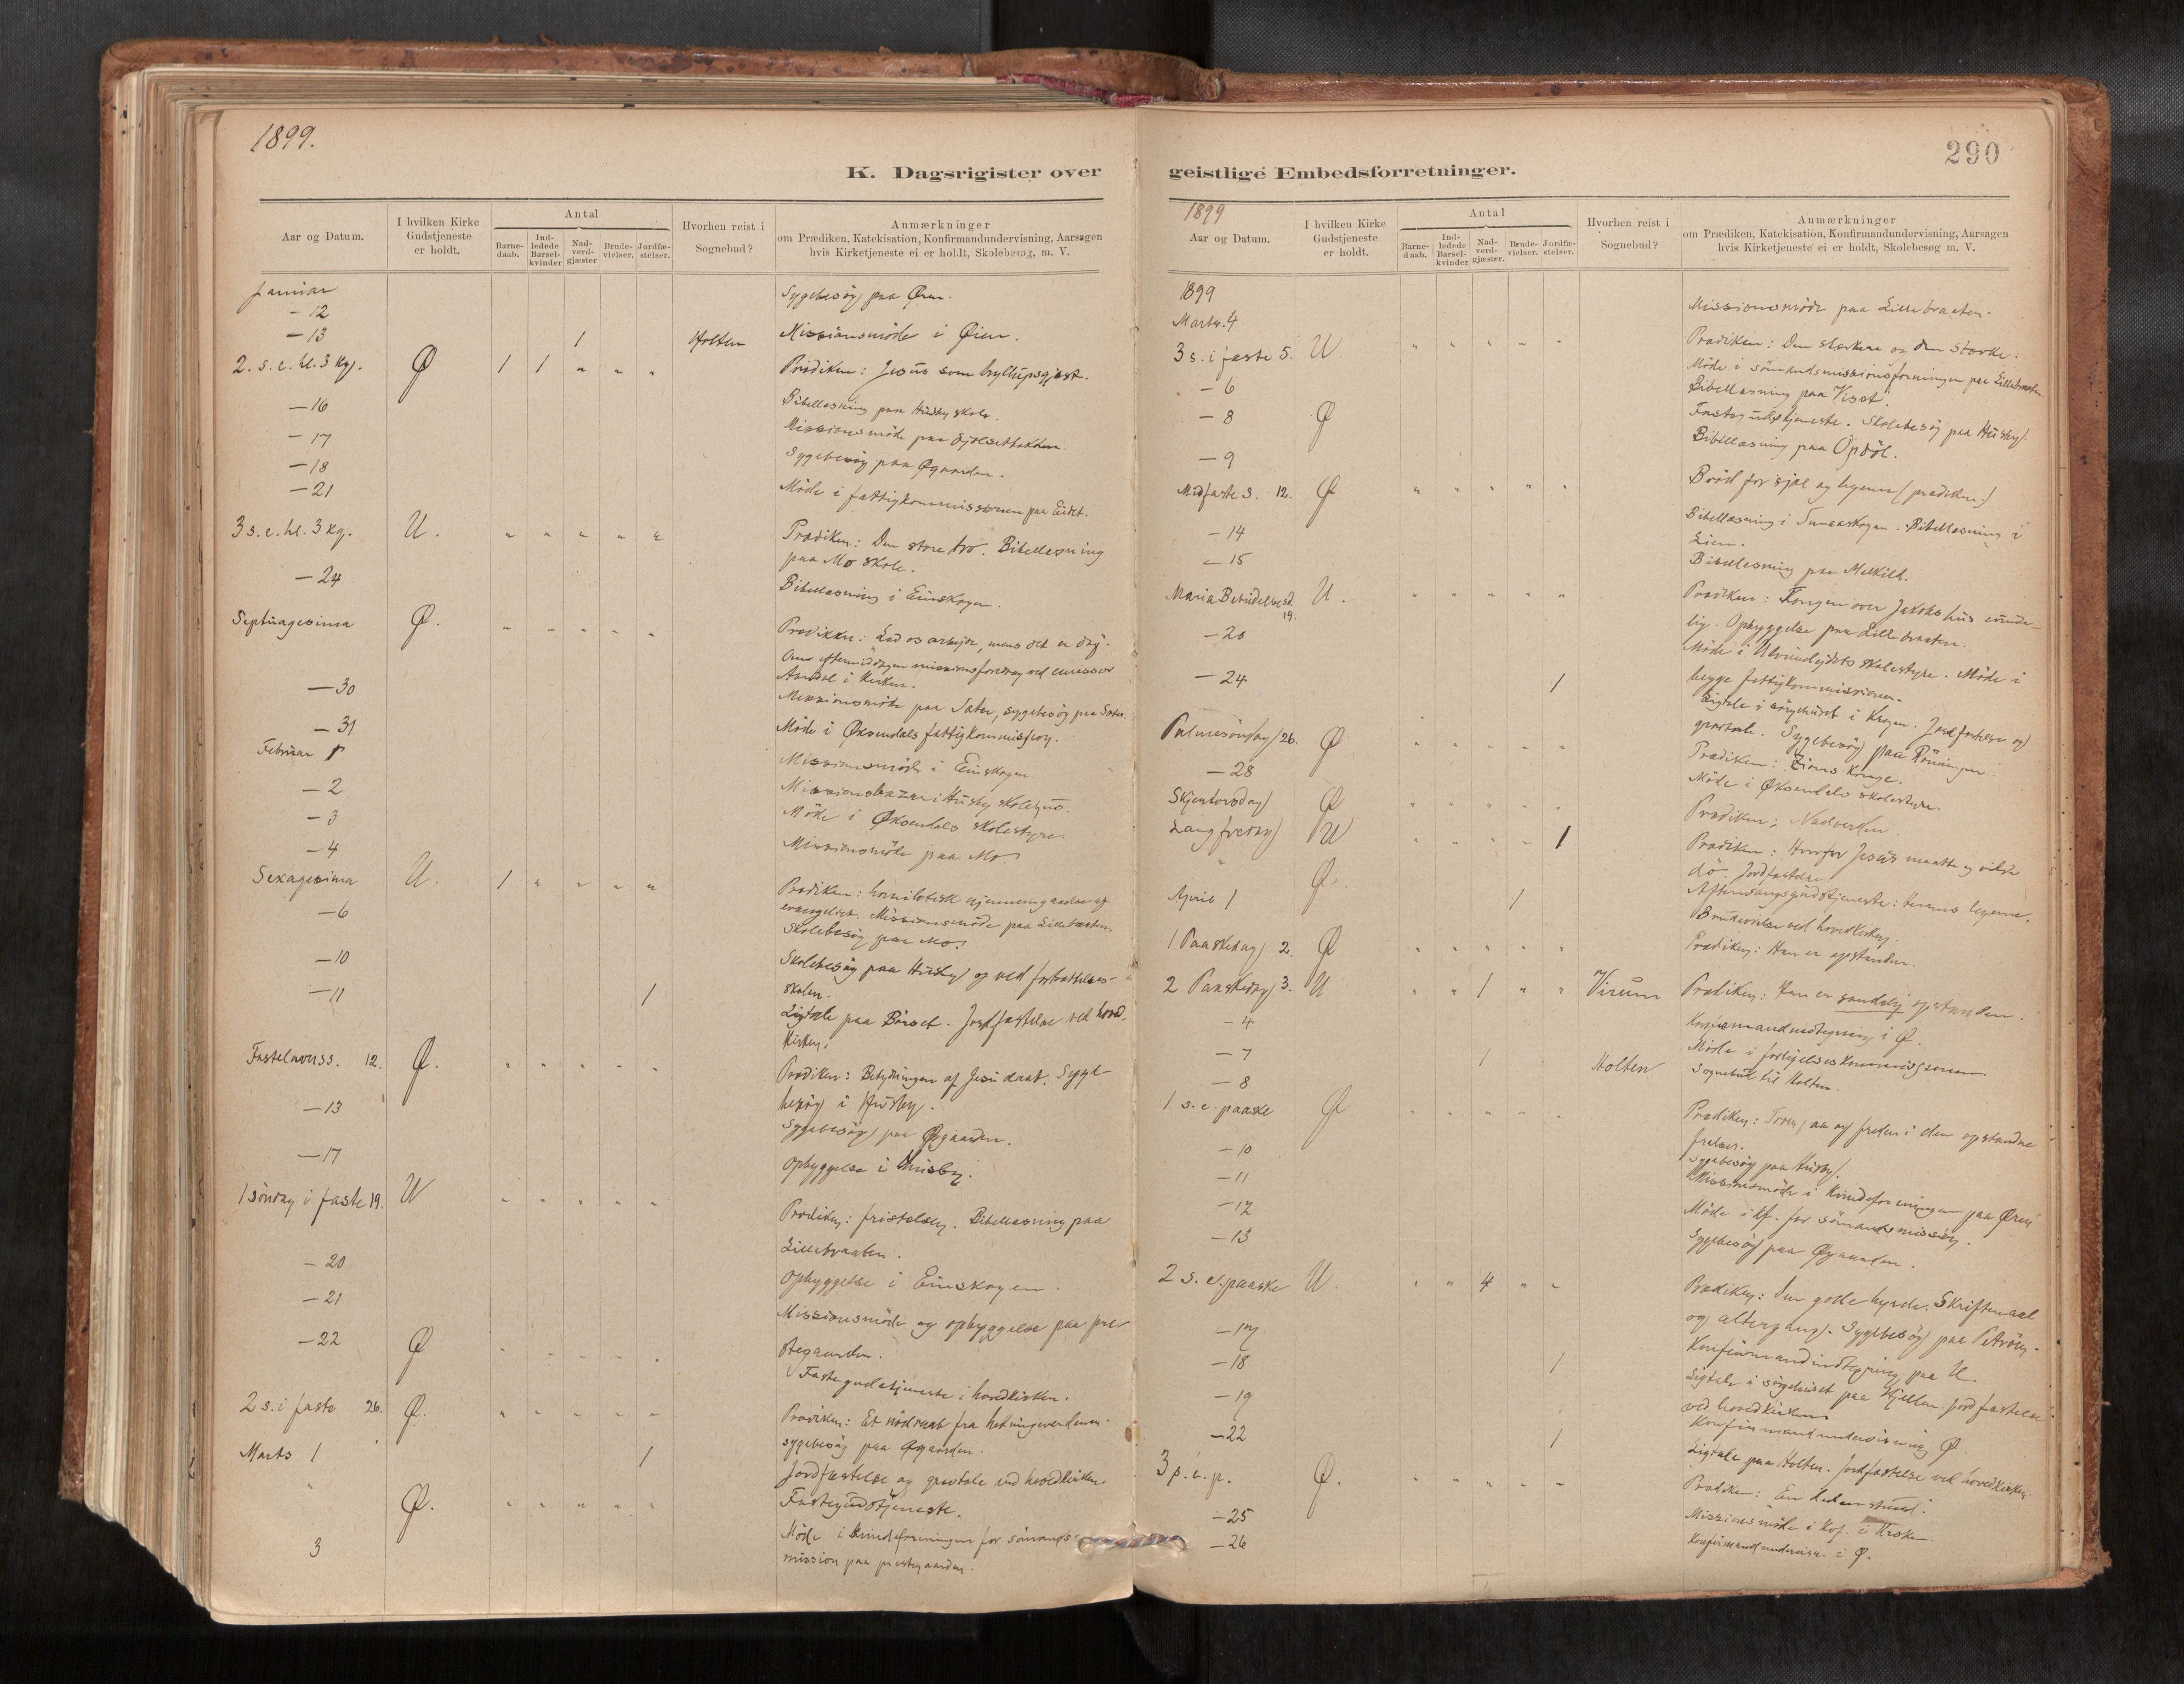 1899.
K. Dagsrigister over
Aar og Datum.
I hvilken Kirke Gudstjeneste er holdt.
Antal
Barne-daab.
Ind-ledede Barsel-kvinder
Nad-verd-gjæster
Brude-vielser.
Jordfæ-stelser.
Hvorhen reist i Sognebud?
Anmærkninger
om Prædiken, Katekisation, Konfirmandundervisning, Aarsagen
hvis Kirketjeneste ei er holdt, Skolebesøg, m. V.
Januar
– 12 Sygebesög paa Øren.
– 13 1 Holten Missionsmöde i Øien.
2. s. e. hl. 3 kg. Ø 1 1 " " " Prædiken: Jesus som bryllupsgjæst.
– 16 Bibellæsning paa Husby skole.
– 17 Missionsmöde paa
– 18 Sygebesög paa Øgaarden.
– 21 Möde i fattigkommissionen paa Eidet.
3 s. e. hl. 3 kg. U. " " " " " Prædiken: Den store tro. Bibellæsning
paa Mo skole.
– 24 Bibellæsning i Einskogen.
Septuagesima Ø. " " " " " Prædiken: Lad os arbejde, mens det er dag.
Om eftermiddagen missionsforedrag ved emissær
Aandal i kirken.
– 30 Missionsmöde paa Sæter, sygebesög paa Sæter.
– 31 Möde i Øksendals fattigkommission.
Februar 1 Missionsmöde i Einskogen.
– 2 Missionsbazar i Husby skolehus.
– 3 Möde i Øksendals skolestyre.
– 4 Missionsmöde paa Mo
Sexagesima U. 1 " " " " Prædiken: homiletisk gjennemgaaelse af
– 6 evangeliet. Missionsmöde paa Lillebraaten.
Skolebesög paa Mo.
– 10 Skolebesög paa Husby og ved fortsættelses-
skolen.
– 11 1 Ligtale paa Börset. Jordfæstelse ved hoved-
kirken.
Fastelavnss. 12. Ø. " " " " " Prædiken: Betydningen af Jesu daab. Syge-
besög i Husby.
– 13 Sygebesög paa Øgaarden.
– 17 Opbyggelse i Husby.
1 söndag i faste 19. U " " " " " Prædiken: fristelsen. Bibellæsning paa
Lillebraaten.
– 20 Opbyggelse i Einskogen.
– 21 Missionsmöde og opbyggelse paa præ-
stegaarden.
– 22 Ø " " " " " Fastegudstjeneste i hovedkirken.
2 s. i faste 26. Ø. " " " " " Prædiken: Et nödraab fra hedningeverdenen.
sygebesög paa Øgaarden.
Marts 1 1 Jordfæstelse og gravtale ved hovedkirken.
" Ø. " " " " " Fastegudstjeneste.
3 Möde i kvindeforeningen for sömands-
mission paa prestegaarden.
290
geistlige Embedsforretninger.
1899
Aar og Datum.
I hvilken Kirke Gudstjeneste er holdt.
Antal
Barne-daab.
Ind-ledede Barsel-kvinder
Nad-verd-gjæster.
Brude-vielser.
Jordfæ-stelser.
Hvorhen reist i Sognebud?
Anmærkninger
om Prædiken, Katekisation, Konfirmandundervisning, Aarsagen
hvis Kirketjeneste ei er holdt, Skolebesøg m. V.
1899
Marts. 4 Missionsmöde paa Lillebraaten.
3 s. i faste 5. U " " " " " Prædiken: Den stærkere og den stærke.
– 6 Möde i sömandsmissionsforeningen paa Lillebraaten
Bibellæsning paa
– 8 Ø Fastegudstjeneste. Skolebesög paa Husby.
– 9 Bibellæsning paa Opdöl.
Midfaste s. 12. Ø " " " " " Bröd for sjæl og legeme (prædiken)
– 14 Bibellæsning i . Bibellæsning i
Lien.
– 15 Bibellæsning paa Melkild.
Maria Bebudelsesd. 19. U. " " " " " Prædiken: Kongen over Jakobs hus ende-
lig. Opbyggelse paa Lillebraaten.
– 20 Möde i Ulvundeidets skolestyre. Möde i
begge fattigkommissioner.
– 24 1 Ligtale i sörgehuset i Krogen. Jordfæstelse og
gravtale. Sygebesög paa Röningen.
Palmesöndag 26. Ø " " " " " Prædiken: Zions konge.
– 28 Möde i Øksendals skolestyre.
Skjærtorsdag Ø " " " " " Prædiken: Nadverden.
Langfredag U " " " " 1 Prædiken: Hvorfor Jesus maatte og vilde
dö. Jordfæstelse.
" Ø. Aftensangsgudstjeneste: legeme.
April 1 1 Brudevielse ved hovedkirken.
1 Paaskedag 2. Ø " " " " " Prædiken: Han er opstanden.
2 Paaskedag 3. U " " 1 " " Virum Prædiken: Han er sandelig opstanden.
– 4 Konfirmandindtegning i Ø.
– 7 Möde i forligelseskommissionen.
– 8 1 Holten Sognebud til Holten.
1 s. e. paaske Ø " " " " " Prædiken: Troen paa og freden i den opstandne
frelser.
– 10 Sygebesög paa Husby.
– 11 Missionsmöde i kvindeforeningen paa Øren
– 12 Möde i kf. for sömandsmission.
– 13 Sygebesög paa Øgaarden.
2 s. e. paaske U. " " 4 " " Prædiken: Den gode hyrde. Skriftemaal
og altergang. Sygebesög paa
– 17 Konfirmandindtegning paa U.
– 18 1 Ligtale i sörgehuset paa Hjellen. jordfæstelse
ved hovedkirken
– 19 Konfirmandundervisning Ø.
– 22 1 Ligtale paa Holten. Jordfæstelse ved hovedkirken.
3 s. e. p. Ø. " " " " " Prædiken: En liden stund.
– 25 Missionsmöde i kvf. i Kroken
– 26 Konfirmandundervisn. i Ø.